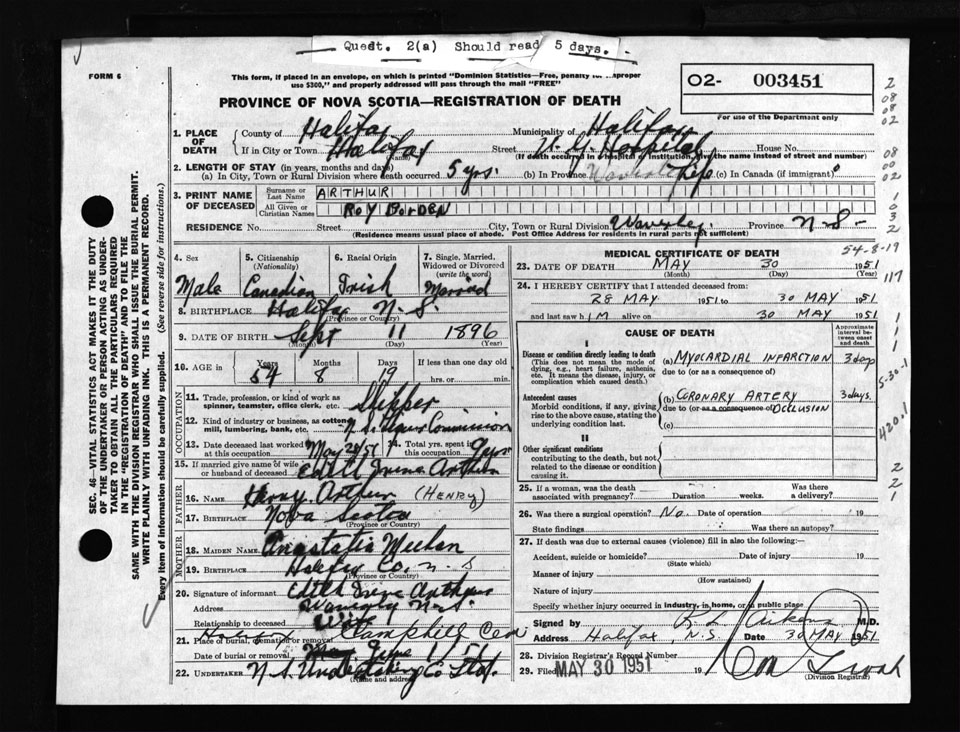 Quest. 2(a) Should read 5 days.
FORM 6
This form, if placed in an envelope, on which is printed "Dominion Statistics—Free, penalty for improper
use $300," and properly addressed will pass through the mail "FREE"
O2- 003451
For use of the Department only
PROVINCE OF NOVA SCOTIA—REGISTRATION OF DEATH
1. PLACE OF DEATH County of Halifax Municipality of Halifax
If in City or Town Halifax Street V. G. Hospital House No.
(Name) (If death occurred in a hospital or institution, give the name instead of street and number)
2. LENGTH OF STAY (in years, months and days)
(a) In City, Town or Rural Division where death occurred 5 yrs. (b) In Province life (c) In Canada (if immigrant)
3. PRINT NAME OF DECEASED Surname or Last Name ARTHUR
All Given or Christian Names ROY BORDEN
RESIDENCE No. Street City, Town or Rural Division Waverley Province N-S-
(Residence means usual place of abode. Post Office Address for residents in rural parts not sufficient)
4. Sex Male
5. Citizenship (Nationality) Canadian
6. Racial Origin Irish
7. Single, Married, Widowed or Divorced (write the word) Married
8. BIRTHPLACE Halifax N. S.
(Province or Country)
9. DATE OF BIRTH Sept 11 1896
(Month) (Day) (Year)
10. AGE in Years 54 Months 8 Days 19 If less than one day old hrs. or min.
OCCUPATION
11. Trade, profession, or kind of work as spinner, teamster, office clerk, etc. Shipper
12. Kind of industry or business, as cotton mill, lumbering, bank, etc. N.S. Liquor Commission
13. Date deceased last worked at this occupation May 24/51 14. Total yrs. spent in this occupation 9 yrs
15. If married give name of wife or husband of deceased Edith Irene Arthur
FATHER
16. NAME Henry Arthur (HENRY)
17. BIRTHPLACE Nova Scotia
(Province or Country)
MOTHER
18. MAIDEN NAME Anastatia Meehan
19. BIRTHPLACE Halifax Co. N. S
(Province or Country)
20. Signature of informant Edith Irene Arthur
Address Waverley N-S.
Relationship to deceased Wife
21. Place of burial, cremation or removal Campbell Cem
Date of burial or removal June 1 / 51
22. UNDERTAKER N. S. Undertaking Co Ltd.
(Name and address)
MEDICAL CERTIFICATE OF DEATH
54-8-19
23. DATE OF DEATH MAY 30 1951
(Month) (Day) (Year)
24. I HEREBY CERTIFY that I attended deceased from:
28 MAY 1951 to 30 MAY 1951
and last saw h IM alive on 30 MAY 1951
CAUSE OF DEATH
Approximate interval between onset and death
I
Disease or condition directly leading to death (a) MYOCARDIAL INFARCTION 3 days
(This does not mean the mode of dying, e.g., heart failure, asthenia, etc. It means the disease, injury, or complication which caused death.)
due to (or as a consequence of)
Antecedent causes (b) CORONARY ARTERY 3 days.
Morbid conditions, if any, giving rise to the above cause, stating the underlying condition last.
due to (or as a consequence of) OCCLUSION
(c)
II
Other significant conditions
contributing to the death, but not related to the disease or condition causing it.
25. If a woman, was the death associated with pregnancy? Duration weeks. Was there a delivery?
26. Was there a surgical operation? No. Date of operation 19
State findings Was there an autopsy?
27. If death was due to external causes (violence) fill in also the following:—
Accident, suicide or homicide? Date of injury 19
(State which)
Manner of injury
(How sustained)
Nature of injury
Specify whether injury occurred in industry, in home, or in public place
Signed by M.D.
Address Halifax, N.S. Date 30 MAY 1951
28. Division Registrar's Record Number
29. Filed MAY 30 1951 19
(Division Registrar)
SEC. 46—VITAL STATISTICS ACT MAKES IT THE DUTY
OF THE UNDERTAKER OR PERSON ACTING AS UNDER-
TAKER TO OBTAIN ALL THE PARTICULARS REQUIRED
IN THE "REGISTRATION OF DEATH" AND TO FILE THE
SAME WITH THE DIVISION REGISTRAR WHO SHALL ISSUE THE BURIAL PERMIT.
WRITE PLAINLY WITH UNFADING INK. THIS IS A PERMANENT RECORD.
Every item of information should be carefully supplied. (See reverse side for instructions.)
117
5-30-1
420.1